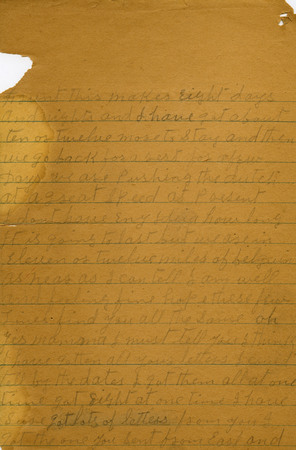 front this makes eight days
and nights and I have got about
ten or twelve more to stay and then
we go back for a rest for a few
days we are Pushing the dutch
at a great speed at Present
I dont have Eny Idia how long
it is going to last but we are in
Eleven or twelve miles of belgium
as near as I can tell I am well
and feeling fine hope these few
lines find you all the same oh
yes mamma I must tell you I think
I have gotten all your letters I can
tell by the dates I got them all at one
time got Eight at one time I have
got lots of letters from you I
got the one you sent from East and